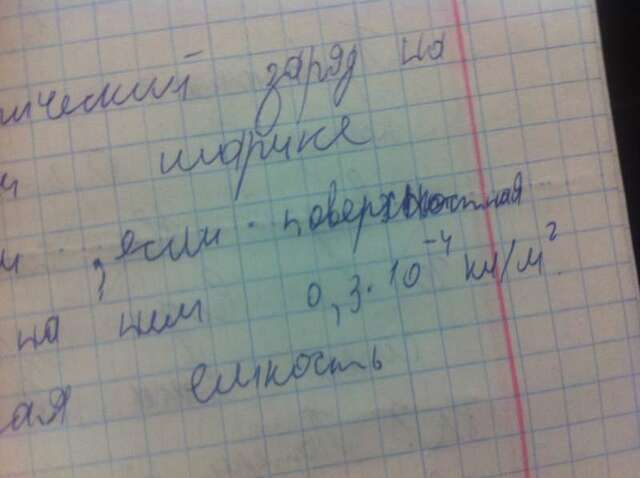 ический заряд на
и шарике
и , если поверхностная
на нем 0,3·10⁻⁴ кл/м²
ая емкость